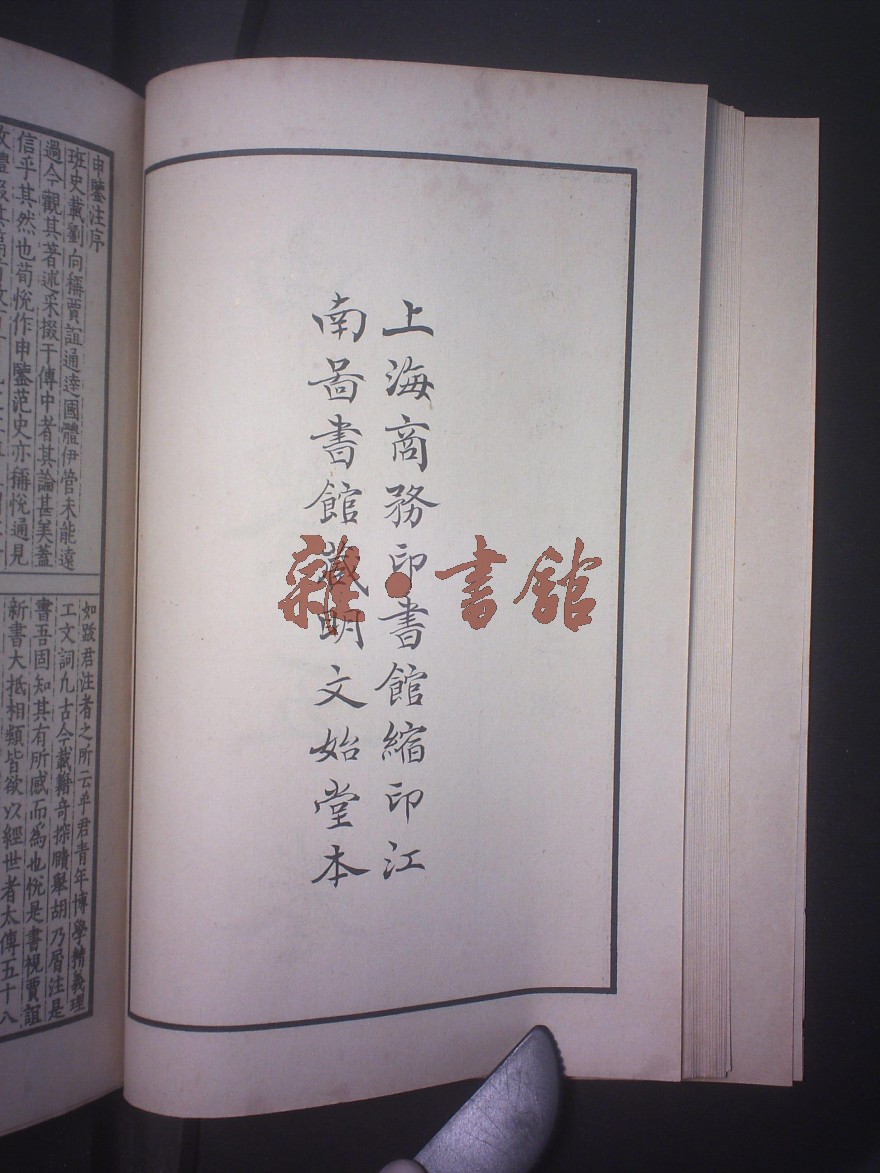 上海商務印書館縮印江
南啚書館藏明文始堂本
雜·書館
申鑒注序
班史載劉向稱賈誼通達國體伊管未能遠
過今觀其著述采掇于傳中者其論甚美蓋
信乎其然也荀悅作申鑒范史亦稱悅通見
如跋君注者之所云乎君青年博學精義理
工文詞凡古今載籍奇探賾舉胡乃屑注是
書吾固知其有所感而為也悅是書視賈誼
新書大抵相類皆欲以經世者太傅五十八